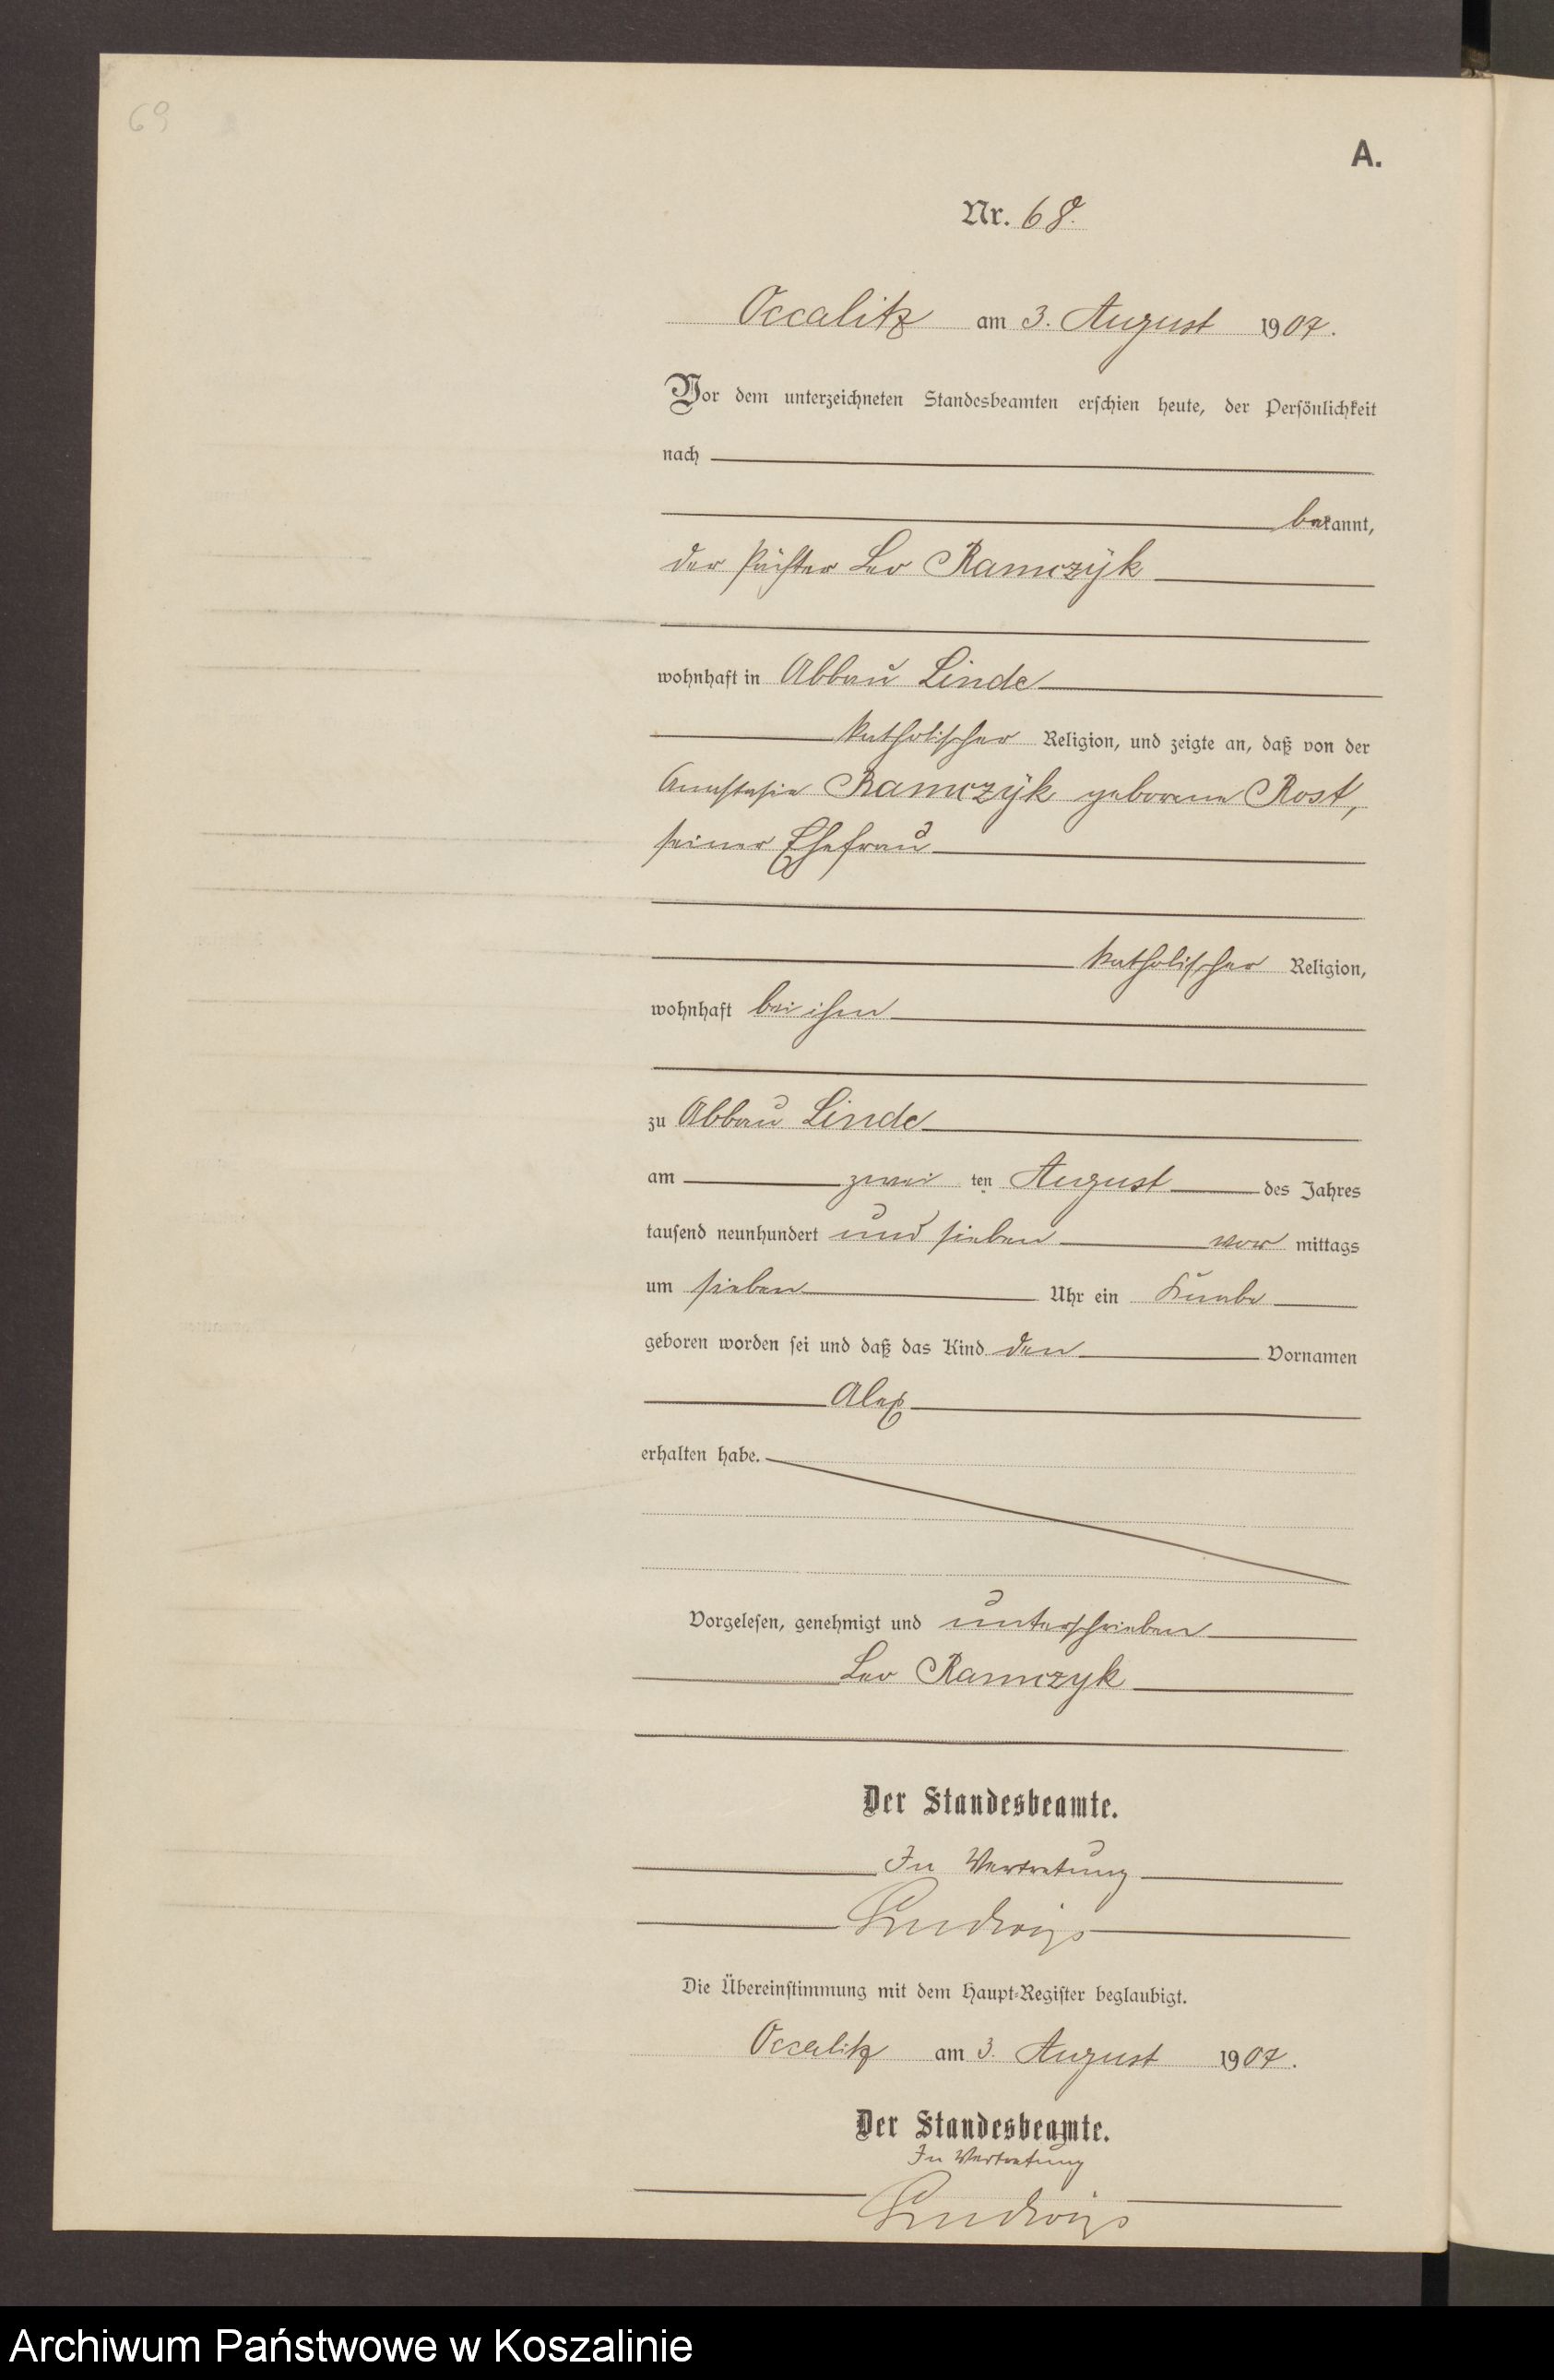 69
A.
Nr. 68.
Occalitz am 3. August 1907.
Vor dem unterzeichneten Standesbeamten erschien heute, der Persönlichkeit
nach
bekannt,
der Pächter Leo Ramczÿk
wohnhaft in Abbau Linde
katholischer Religion, und zeigte an, daß von der
Anastasia Ramczÿk geborene Rost,
seiner Ehefrau
katholischer Religion,
wohnhaft bei ihm
zu Abbau Linde
am zwei ten August des Jahres
tausend neunhundert und sieben vor mittags
um sieben Uhr ein Knabe
geboren worden sei und daß das Kind den Vornamen
Alex
erhalten habe.
Vorgelesen, genehmigt und unterschrieben
Leo Ramczyk
Der Standesbeamte.
In Vertretung
Die Übereinstimmung mit dem Haupt-Register beglaubigt.
Occalitz am 3. August 1907.
Der Standesbeamte.
In Vertretung
Archiwum Państwowe w Koszalinie